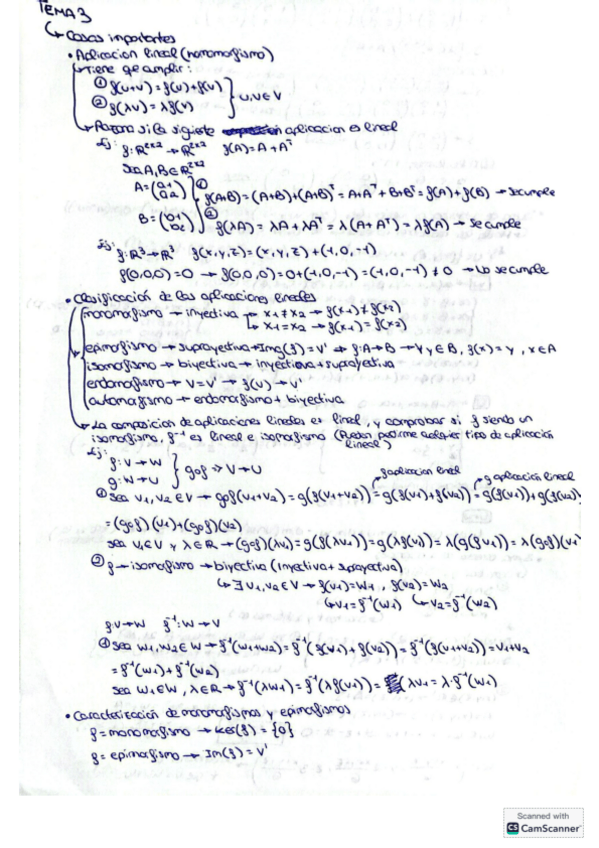 TEMA 3
↳ Cosas importantes
• Aplicacion lineal (homomorfismo)
↳ Tiene qe cumplir:
① f(u+v) = f(u)+f(v)
② f(λu) = λf(u)
} u,v∈V
↳ Razona si la sigiete aplicacion es lineal
Ej: f: R²ˣ² → R²ˣ² f(A) = A + Aᵀ
sea A,B∈R²ˣ²
① f(A+B) = (A+B)+(A+B)ᵀ = A+Aᵀ+B+Bᵀ = f(A)+f(B) → se cumple
② f(λA) = λA + λAᵀ = λ(A+Aᵀ) = λf(A) → se cumple
Ej: f: R³ → R³ f(x,y,z) = (x,y,z) + (1,0,-1)
f(0,0,0) = 0 → f(0,0,0) = 0+(1,0,-1) = (1,0,-1) ≠ 0 → No se cumple
• Clasificación de las aplicaciones lineales
monomorfismo → inyectiva → x1≠x2 → f(x1)≠f(x2)
↳ x1=x2 → f(x1)=f(x2)
epimorfismo → suprayectiva → Img(f) = V' → f: A→B → ∀y∈B, f(x) = y, x∈A
isomorfismo → biyectiva → inyectiva + suprayectiva
endomorfismo → V=V' → f(v) → v'
automorfismo → endomorfismo + biyectiva
↳ La composicion de aplicaciones lineales es lineal, y comprobar si f siendo un
isomorfismo, f⁻¹ es lineal e isomorfismo (Pueden pedirme cualqier tipo de aplicación
lineal)
Ej:
f: V→W
g: W→U
} gof ⇒ V→U
f aplicacion lineal
g aplicación lineal
① sea v1,v2∈V → gof(v1+v2) = g(f(v1+v2)) = g(f(v1)+f(v2)) = g(f(v1))+g(f(v2))
= (gof)(v1)+(gof)(v2)
sea v1∈V y λ∈R → (gof)(λv1) = g(f(λv1)) = g(λf(v1)) = λ(g(f v1)) = λ(gof)(v1
② f → isomorfismo → biyectiva (inyectiva + suprayectiva)
↳ ∃ v1,v2∈V → f(v1)=W1, f(v2)=W2
↳ v1 = f⁻¹(w1) ↳ v2 = f⁻¹(w2)
f: V→W f⁻¹: W→V
① sea w1,w2∈W → f⁻¹(w1+w2) = f⁻¹(f(v1)+f(v2)) = f⁻¹(f(v1+v2)) = v1+v2
= f⁻¹(w1) + f⁻¹(w2)
sea w1∈W, λ∈R → f⁻¹(λw1) = f⁻¹(λf(v1)) = λv1 = λ·f⁻¹(w1)
• Caracterización de monomorfismos y epimorfismos
f = monomorfismo → Ker(f) = {0}
f = epimorfismo → Im(f) = V'
Scanned with
CS CamScanner